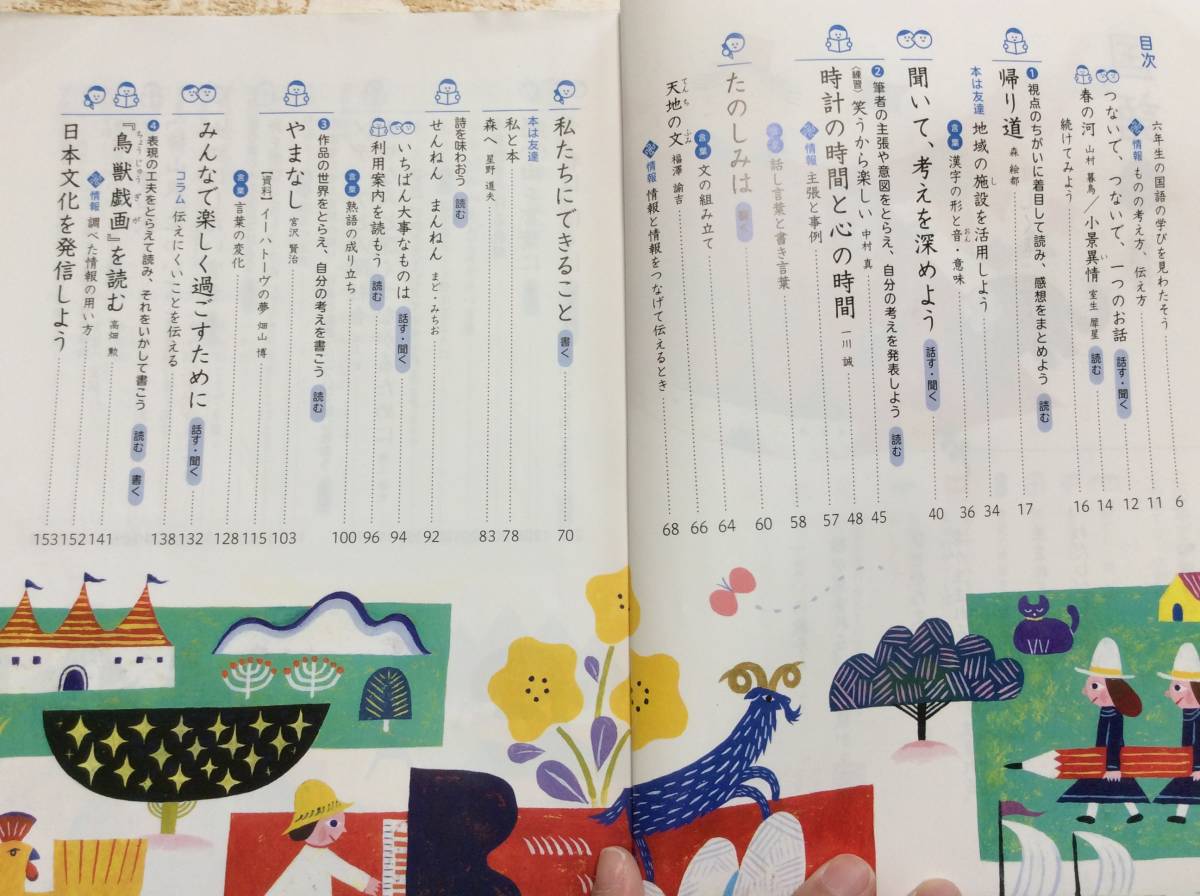 目次
六年生の国語の学びを見わたそう 6
情報 ものの考え方、伝え方 11
つないで、つないで、一つのお話 話す・聞く 12
春の河 山村 暮鳥／小景異情 室生 犀星 読む 14
続けてみよう 16
❶ 視点のちがいに着目して読み、感想をまとめよう 読む
帰り道 森 絵都 17
本は友達 地域の施設を活用しよう 34
言葉 漢字の形と音・意味 36
聞いて、考えを深めよう 話す・聞く 40
❷ 筆者の主張や意図をとらえ、自分の考えを発表しよう 読む 45
〈練習〉笑うから楽しい 中村 真 48
時計の時間と心の時間 一川 誠 57
情報 主張と事例 58
話し言葉と書き言葉 60
たのしみは 64
言葉 文の組み立て 66
天地の文 福澤 諭吉 68
情報 情報と情報をつなげて伝えるとき
私たちにできること 書く 70
本は友達
私と本 78
森へ 星野 道夫 83
詩を味わおう 読む
せんねん まんねん まど・みちお 92
いちばん大事なものは 話す・聞く 94
利用案内を読もう 読む 96
言葉 熟語の成り立ち 100
❸ 作品の世界をとらえ、自分の考えを書こう 読む
やまなし 宮沢 賢治 103
【資料】イーハトーヴの夢 畑山 博 115
言葉 言葉の変化 128
みんなで楽しく過ごすために 話す・聞く 132
コラム 伝えにくいことを伝える 138
❹ 表現の工夫をとらえて読み、それをいかして書こう 読む 書く
『鳥獣戯画』を読む 高畑 勲 141
情報 調べた情報の用い方 152
日本文化を発信しよう 153